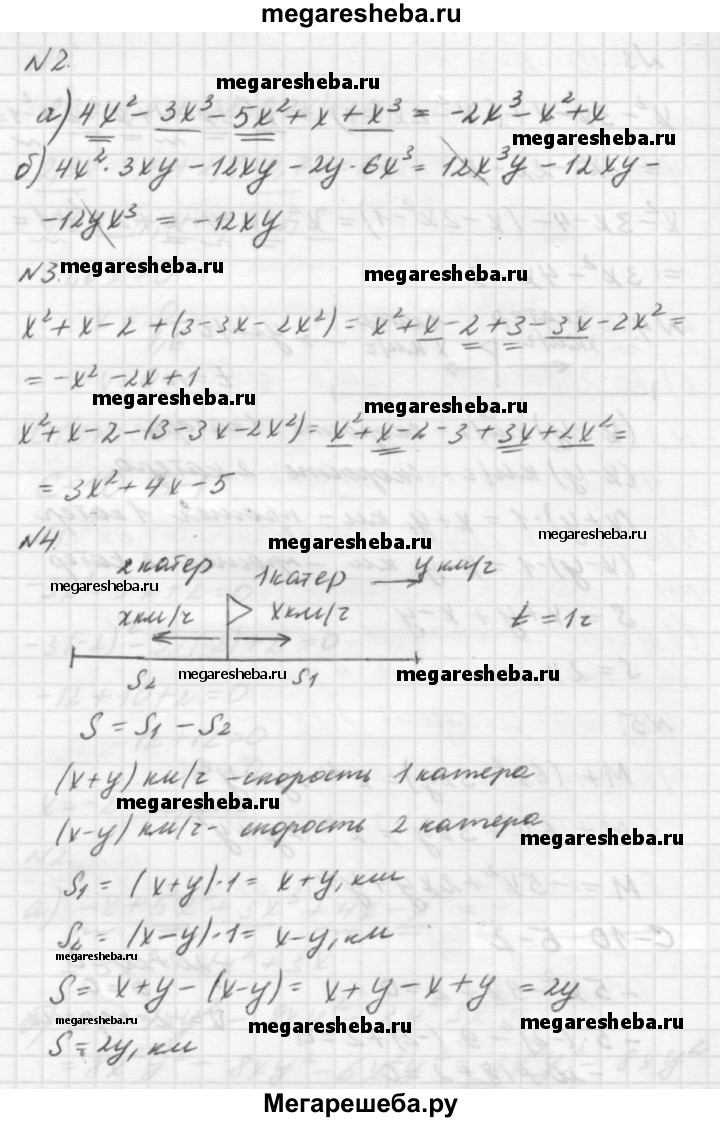 megaresheba.ru
N2.
megaresheba.ru
а) 4x² - 3x³ - 5x² + x + x³ = -2x³ - x² + x
megaresheba.ru
б) 4x² · 3xy - 12xy - 2y · 6x³ = 12x³y - 12xy -
-12yx³ = -12xy
N3.
megaresheba.ru megaresheba.ru
x² + x - 2 + (3 - 3x - 2x²) = x² + x - 2 + 3 - 3x - 2x² =
= -x² - 2x + 1
megaresheba.ru megaresheba.ru
x² + x - 2 - (3 - 3x - 2x²) = x² + x - 2 - 3 + 3x + 2x² =
= 3x² + 4x - 5
N4.
megaresheba.ru megaresheba.ru
2 катер 1 катер y км/г
megaresheba.ru
x км/г x км/г t = 1г
S₂ megaresheba.ru S₁ megaresheba.ru
S = S₁ - S₂
(x+y) км/г - скорость 1 катера
megaresheba.ru
(x-y) км/г - скорость 2 катера
megaresheba.ru
S₁ = (x+y)·1 = x+y, км
S₂ = (x-y)·1 = x-y, км
megaresheba.ru
S = x+y - (x-y) = x+y-x+y = 2y
megaresheba.ru megaresheba.ru megaresheba.ru
S = 2y, км
Мегарешеба.ру